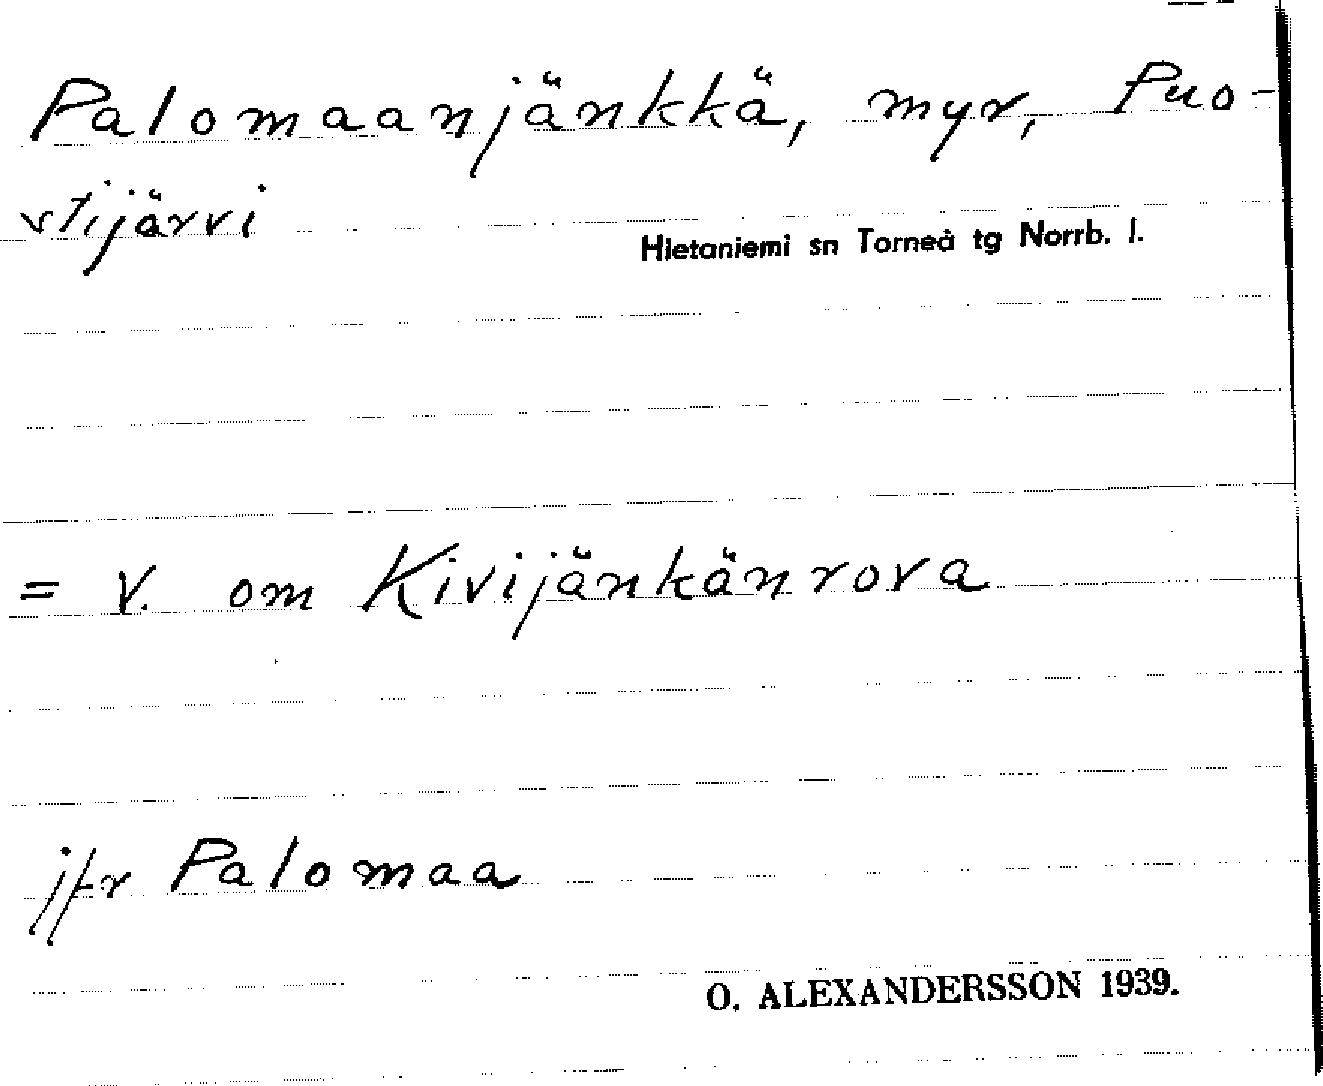 Palomaanjänkkä, myr, Puo-
stijärvi
Hietaniemi sn Torneå tg Norrb. l.
= V. om Kivijänkänrova
jfr Palomaa
O. ALEXANDERSSON 1939.